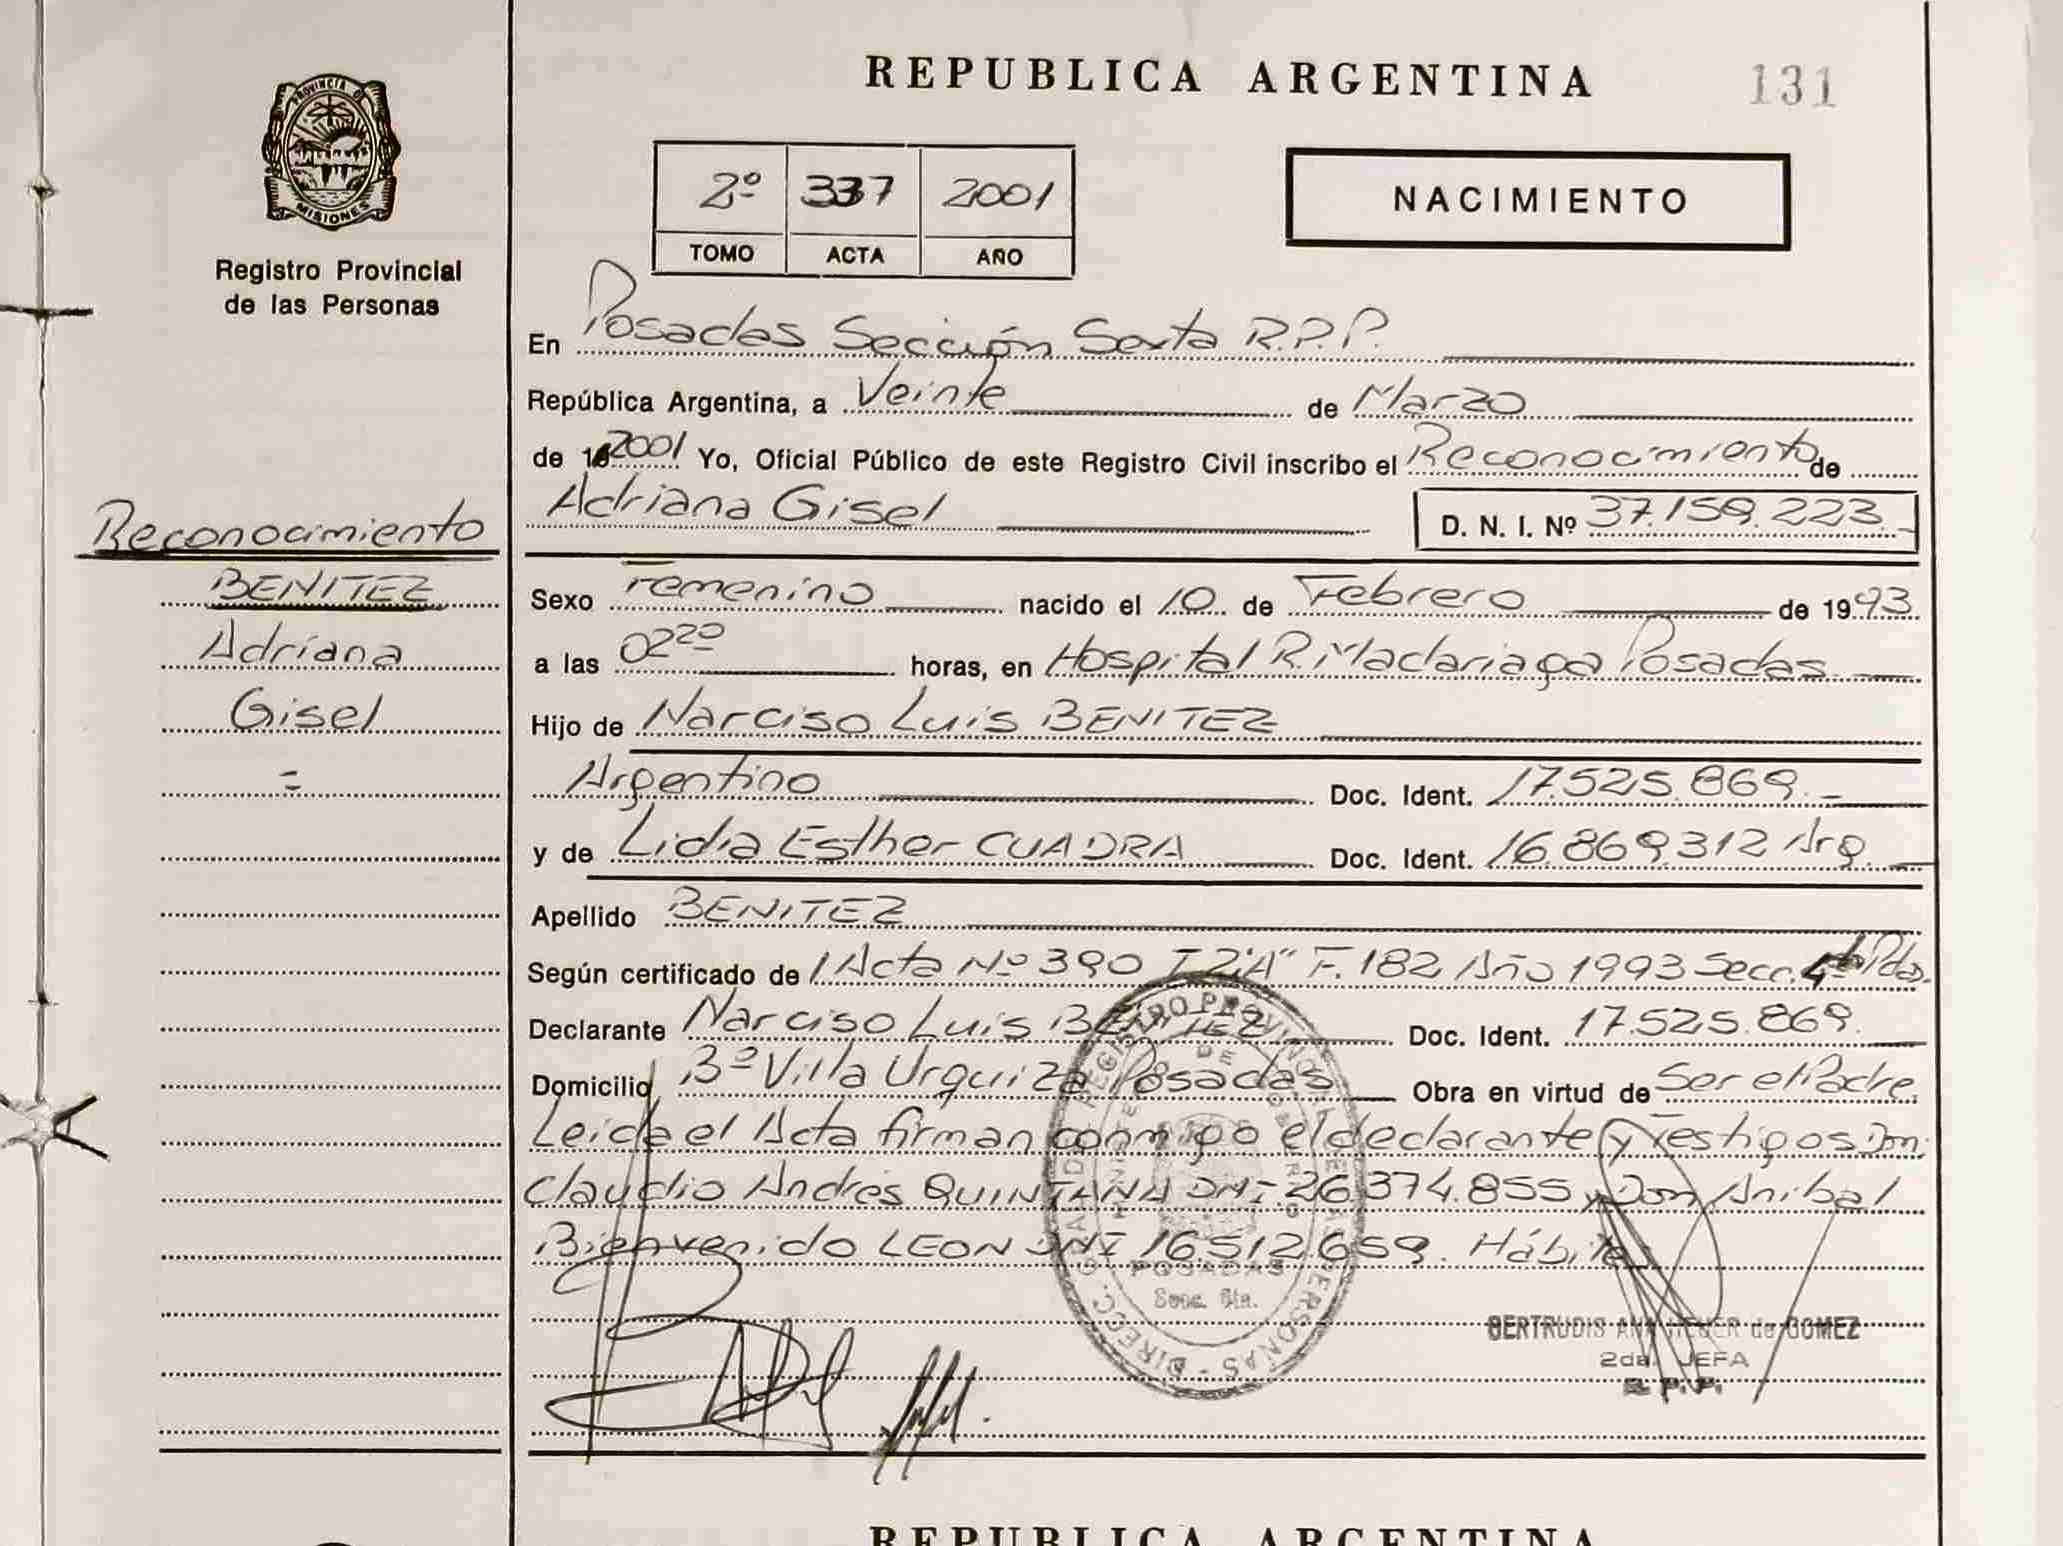 REPUBLICA ARGENTINA
131
PROVINCIA DE
MISIONES
Registro Provincial
de las Personas
2º 337 2001
TOMO ACTA AÑO
NACIMIENTO
En Posadas Sección Sexta R.P.P.
República Argentina, a Veinte de Marzo
de 2001 Yo, Oficial Público de este Registro Civil inscribo el Reconocimiento de
Adriana Gisel D. N. I. Nº 37.159.223.-
Reconocimiento
BENITEZ
Adriana
Gisel
=
Sexo Femenino nacido el 10 de Febrero de 1993
a las 02²⁰ horas, en Hospital R. Madariaga Posadas
Hijo de Narciso Luis BENITEZ
Argentino Doc. Ident. 17.525.869.-
y de Lidia Esther CUADRA Doc. Ident. 16.869.312 Arg.
Apellido BENITEZ
Según certificado de Acta Nº 390 T 2"A" F. 182 Año 1993 Secc. 4ta Pdas.
Declarante Narciso Luis BENITEZ Doc. Ident. 17.525.869.
Domicilio Bº Villa Urquiza Posadas Obra en virtud de Ser el Padre.
Leida el Acta firman conmigo el declarante y Testigos Don
Claudio Andrés QUINTANA DNI 26.374.855 y Don Anibal
Bienvenido LEON DNI 16.512.659. Hábiles
DIRECC. GRAL. DE REGISTRO PROVINCIAL DE LAS PERSONAS
MINISTERIO DE GOBIERNO
POSADAS
Secc. 6ta.
GERTRUDIS ANA de GOMEZ
2da. JEFA
R. P. P.
REPUBLICA ARGENTINA